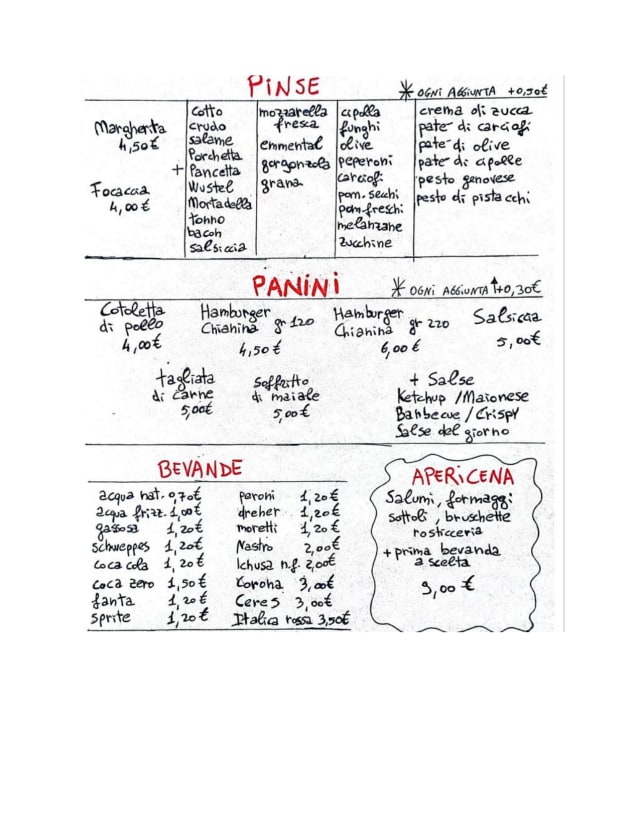 PINSE
* OGNI AGGIUNTA +0,50€
Margherita
4,50€
Focaccia
4,00€
+
cotto
crudo
salame
Porchetta
Pancetta
Wustel
Mortadella
tonno
bacon
salsiccia
mozzarella
fresca
emmental
gorgonzola
grana
cipolla
funghi
olive
peperoni
carciofi
pom. secchi
pom. freschi
melanzane
zucchine
crema di zucca
pate di carciofi
pate di olive
pate di cipolle
pesto genovese
pesto di pistacchi
PANINI
* OGNI AGGIUNTA +0,30€
Cotoletta
di pollo
4,00€
Hamburger
Chianina gr 120
4,50€
Hamburger
Chianina gr 220
6,00€
Salsiccia
5,00€
tagliata
di carne
5,00€
Soffritto
di maiale
5,00€
+ Salse
Ketchup / Maionese
Barbecue / Crispy
Salse del giorno
BEVANDE
acqua nat. 0,70€
acqua frizz. 1,00€
gassosa 1,20€
schweppes 1,20€
coca cola 1,20€
coca zero 1,50€
fanta 1,20€
sprite 1,20€
peroni 1,20€
dreher 1,20€
moretti 1,20€
Nastro 2,00€
Ichusa n.f. 2,00€
Corona 3,00€
Ceres 3,00€
Italica rossa 3,50€
APERICENA
Salumi, formaggi
sottoli, bruschette
rosticceria
+ prima bevanda
a scelta
9,00€